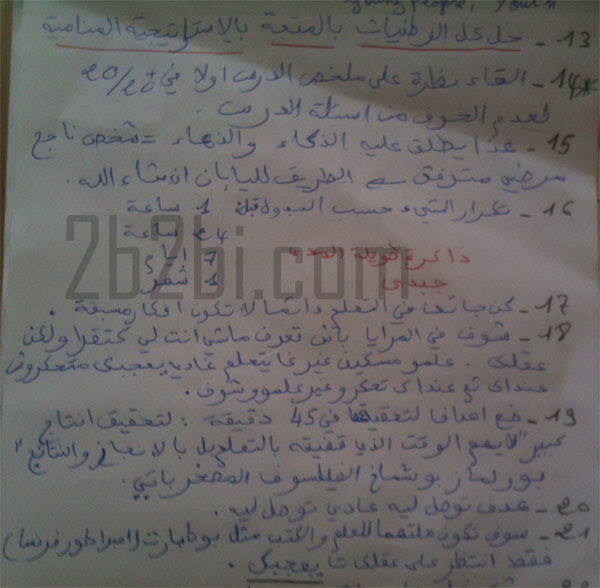 young people, youth
13 - حل كل الوطنيات بالمتعة بالاستراتيجية المنامية
14* - القاء نظرة على ملخص الدرس اولا في 20/20
لعدم الخوف من اسئلة الدرس .
15 - هذا يطلق عليه الذكاء والدهاء = شخص ناجح
مرضي متوفق في الطريق لليابان انشاء الله .
16 - تكرار الشيء حسب الجدول قبلة 1 ساعة
24 ساعة
7 ايام
1 شهر
ذاكرة طويلة المدى
جيدي
2b2bi.com
17 - كن جائعا في التعلم دائما لا تكون افكار مسبقة .
18 - شوف في المرايا باش تعرف ماشي انت لي كتقرا ولكن
عقلك . علمو مسكين غير غا يتعلم غادي يعجبك متعكروش
عنداك ثم عنداك تعكرو غير علمو وشوف .
19 - ضع اهدافا لتحقيقها في 45 دقيقة : لتحقيق انتاج
كبير "لا يهم الوقت الذي تقضيه بالتعلم بل بالانجاز والنتائج"
بورلماز بوشماخ الفيلسوف المصغرياتي .
20 - هدف توصل ليه عادي توصل ليه .
21 - سوف تكون ملتهما للعلم والكتب مثل بونابارت (امبراطور فرنسا)
فقط انتظر على عقلك تا يعجبك .